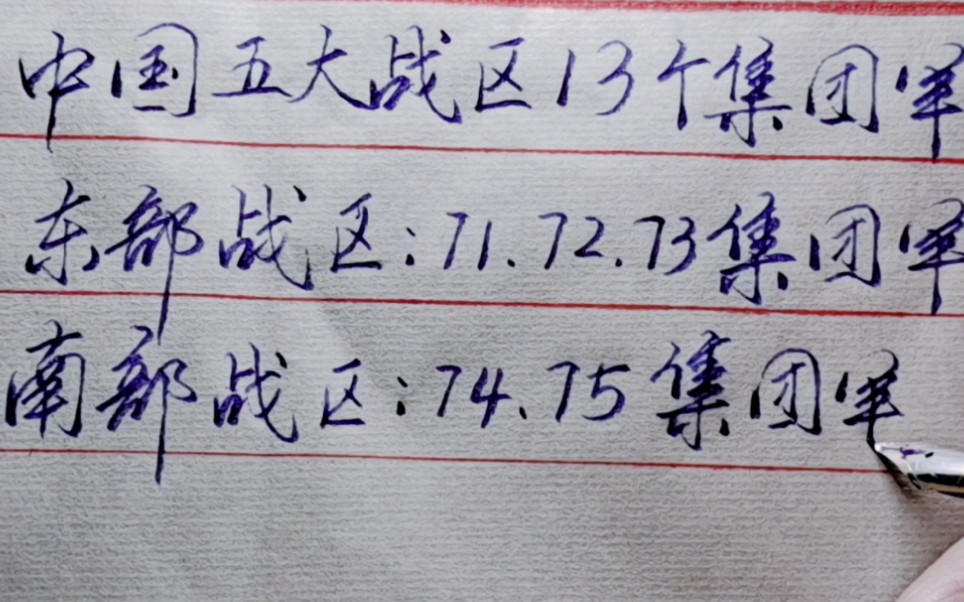 中国五大战区13个集团军
东部战区:71.72.73集团军
南部战区:74.75集团军